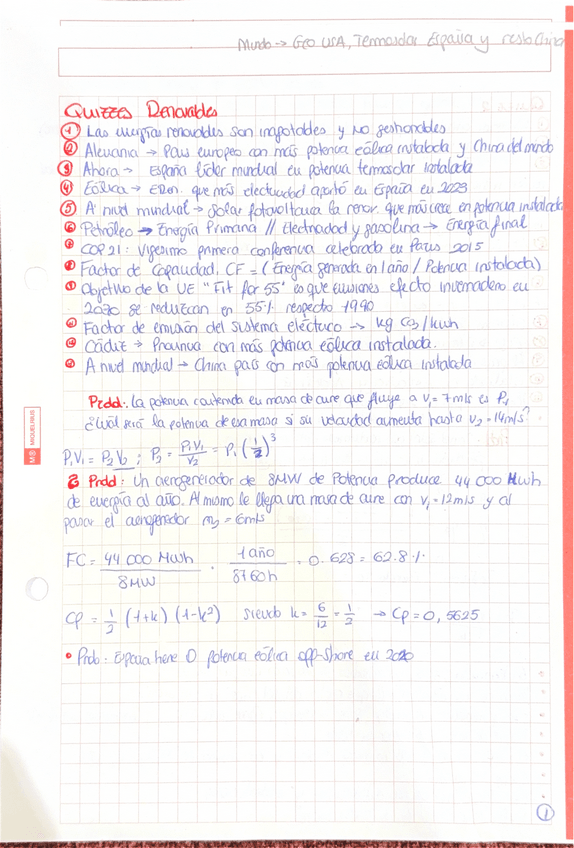 Mundo → Geo USA, Termosolar España y resto China
Quizzes Renovables
① Las energías renovables son inagotables y NO gestionables
② Alemania → País europeo con más potencia eólica instalada y China del mundo
③ Ahora → España líder mundial en potencia termosolar instalada
④ Eólica → E.Ren. que más electricidad aportó en España en 2023
⑤ A nivel mundial → Solar fotovoltaica la renov. que más crece en potencia instalada
⑥ Petróleo → Energía Primaria // Electricidad y gasolina → Energía final
COP 21: Vigesimo primera conferencia celebrada en París 2015
Factor de Capacidad, CF = (Energía generada en 1 año / Potencia instalada)
Objetivo de la UE "Fit for 55" es que emisiones efecto invernadero en
2030 se reduzcan en 55% respecto 1990
Factor de emisión del sistema eléctrico → kg CO2/kwh
Cádiz → Provincia con más potencia eólica instalada.
A nivel mundial → China país con más potencia eólica instalada
Prdd.: La potencia contenida en masa de aire que fluye a V1 = 7m/s es P1
¿Cuál será la potencia de esa masa si su velocidad aumenta hasta V2 = 14m/s?
P1V1 = P2V2 ; P2 = P1V1/V2 = P1 (1/2)^3
2 Prdd: Un aerogenerador de 8MW de Potencia produce 44 000 Mwh
de energía al año. Al mismo le llega una masa de aire con V1 = 12m/s y al
pasar el aerogenerador = 6m/s
FC = 44.000 MWh / 8MW · 1 año / 8760h = 0.628 = 62.8%
Cp = 1/2 (1+k) (1-k²) siendo k = 6/12 = 1/2 → Cp = 0,5625
• Prob: España tiene 0 potencia eólica off-shore en 2020
M® MIQUELRIUS
1